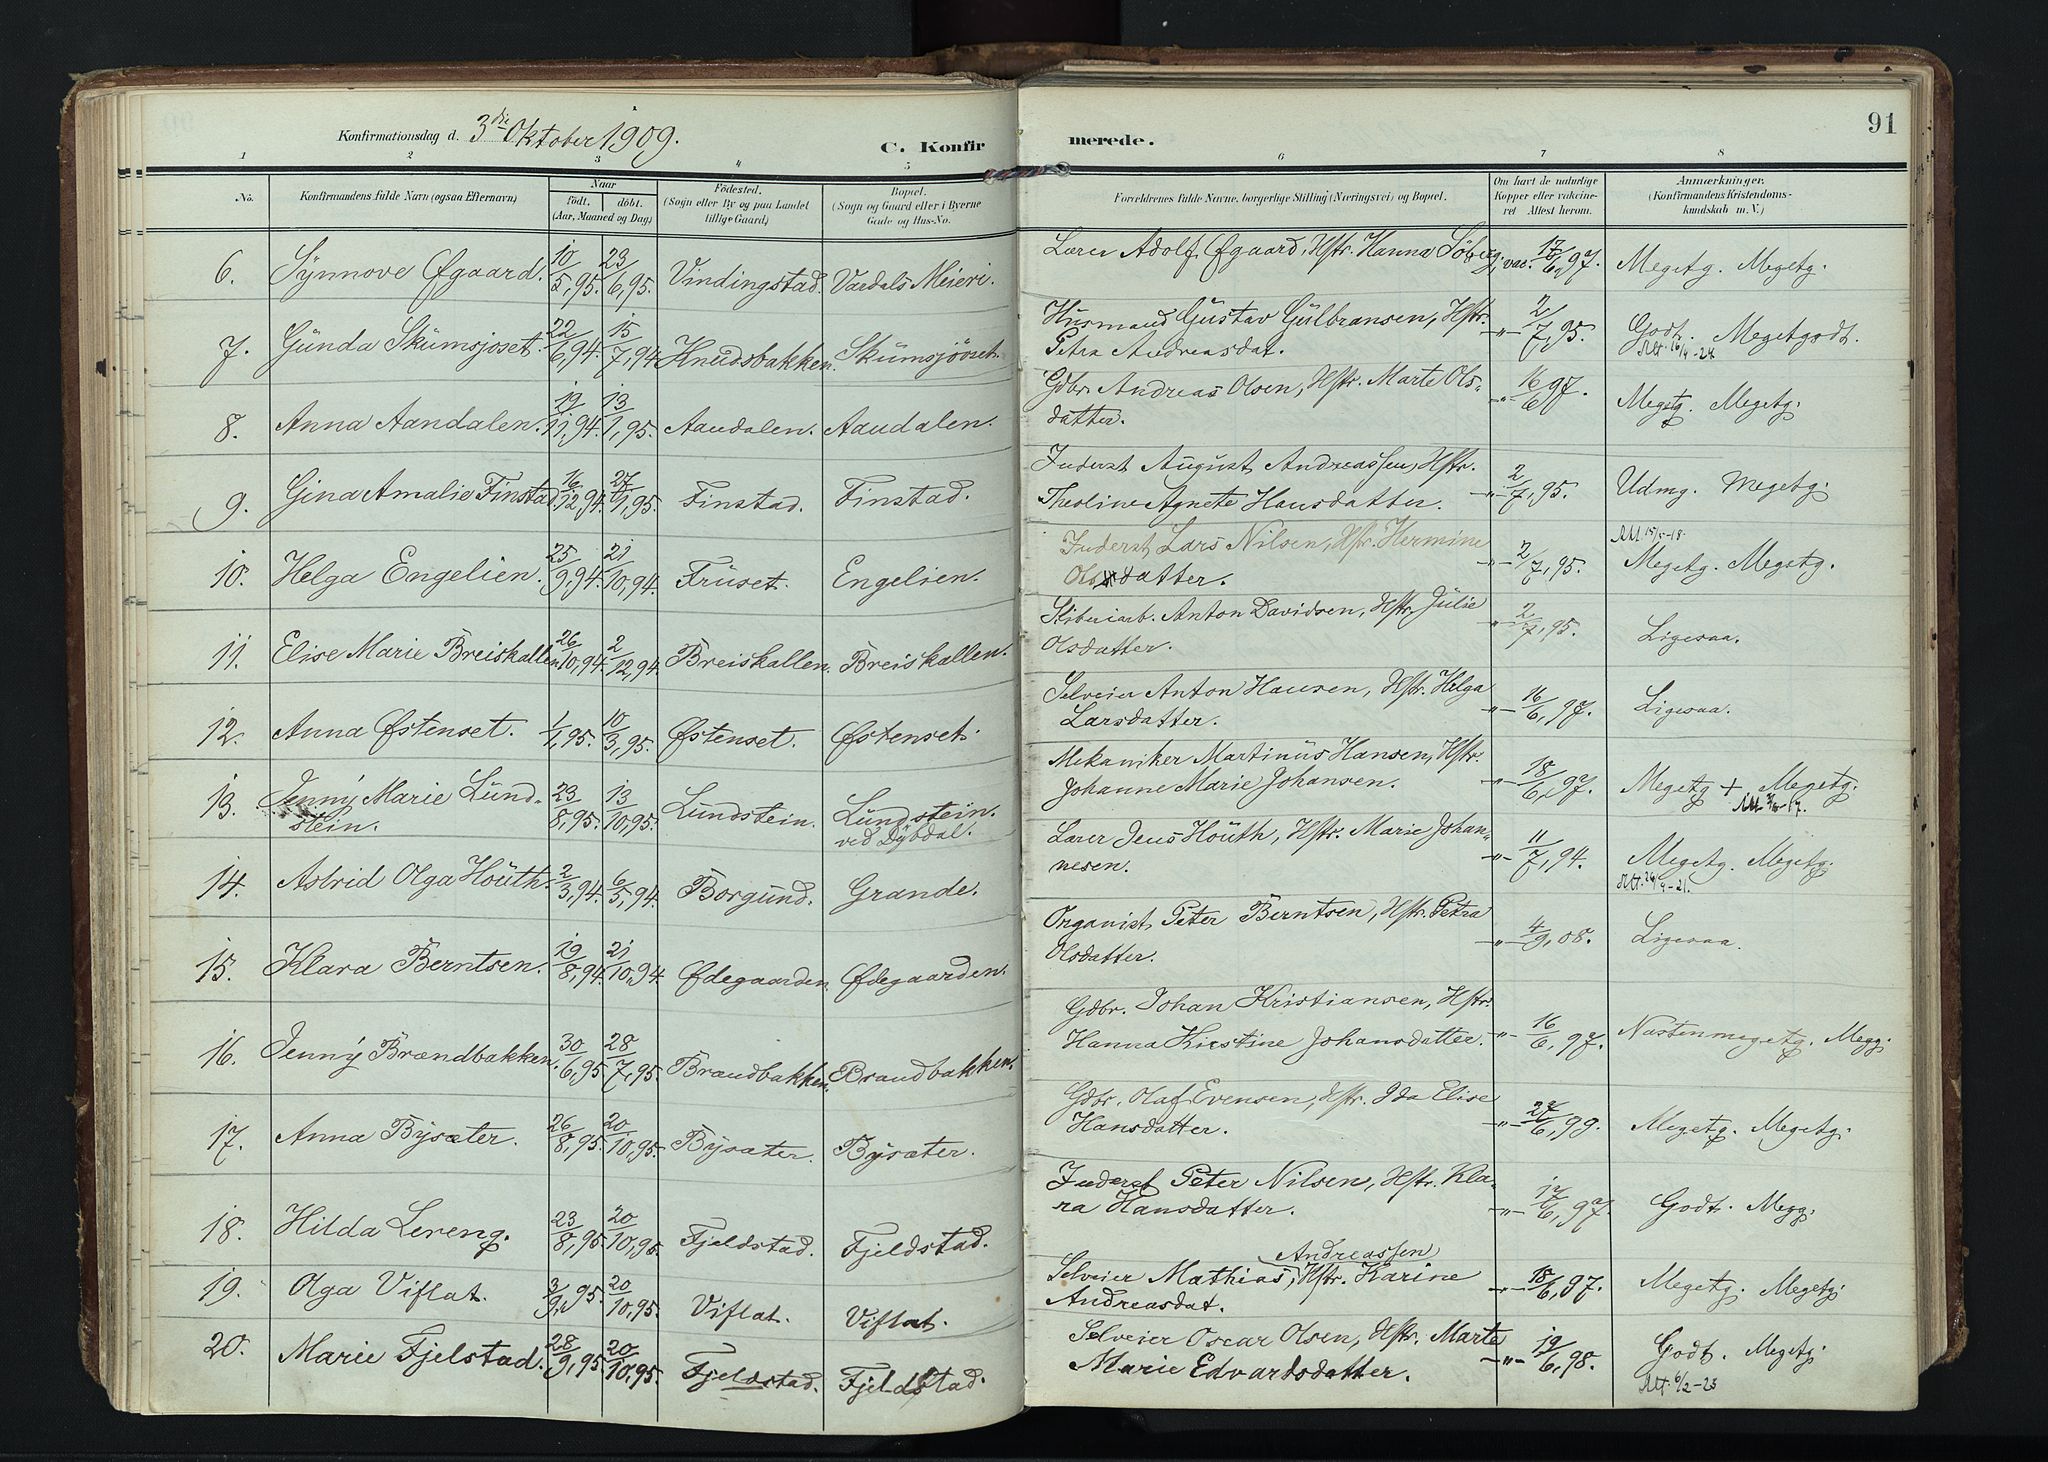 Konfirmationsdag d. 3die Oktober 1909.
C. Konfirmerede.
91
1 2 3 4 5 6 7 8
No. Konfirmandens fulde Navn (ogsaa Efternavn) Naar Født. døbt. (Aar, Maaned og Dag) Fødested. (Sogn eller By og paa Landet tillige Gaard) Bopæl. (Sogn og Gaard eller i Byerne Gade og Hus-No. Forældrenes fulde Navne, borgerlige Stilling (Næringsvei) og Bopæl. Om havt de naturlige Kopper eller vakcineret Attest herom. Anmærkninger. (Konfirmandens Kristendomskundskab m. V.)
6. Synnove Øfgaard. 10/5,95. 23/6,95. Vindingstad. Vardals Meieri. Lærer Adolf Øfgaard, Hstr. Hanna Söberg. vac. 17/6,97. Megetg. Megetg.
7. Gunda Skumsjøset. 22/6,94. 15/7,94 Knudsbakken. Skumsjöset. Husmand Gustav Gulbransen, Hstr.
Petra Andreasdat. -"- 2/7,95. Godt. Megetgodt.
Att. 16/4-24
8. Anna Aandalen. 19/11,94. 13/1,95. Aandalen. Aandalen. Gdbr. Andreas Olsen, Hstr. Marte Ols-
datter. -"- 16/6 97. Megetg. Megetg.
9. Gina Amalie Finstad 16/12,94. 27/1,95. Finstad. Finstad. Inderst August Andreassen, Hstr.
Theoline Agnete Hansdatter. -"- 2/7,95. Udmg. Megetg.
10. Helga Engelien. 25/9,94. 21/10,94. Fruset. Engelien. Inderst Lars Nilsen, Hstr. Hermine
Olsdatter. -"- 2/7,95. Att. 15/5-18. Megetg. Megetg.
11. Elise Marie Breiskallen. 26/10,94. 2/12,94. Breiskallen. Breiskallen. Sliberiarb. Anton Davidsen, Hstr. Julie
Olsdatter. -"- 2/7,95. Ligesaa.
12. Anna Østenset. 1/1,95. 10/3,95. Østenset. Østenset. Selveier Anton Hansen, Hstr. Helga
Larsdatter. -"- 16/6,97. Ligesaa.
13. Jenny Marie Lund-
stein. 23/8,95. 13/10,95. Lundstein. Lundstein.
ved Dybdal. Mekaniker Martinus Hansen, Hstr.
Johanne Marie Johansen. -"- 18/6,97. Megetg + Megetg.
14. Astrid Olga Höuth. 2/3,94. 6/5,94. Borgund. Grande. Lærer Jens Höuth, Hstr. Marie Johan-
nesen. -"- 11/7,94. Megetg. Megetg.
Att. 26/9-21.
15. Klara Berntsen. 19/8,94. 21/10,94 Ødegaarden. Ødegaarden. Organist Peter Berntsen, Hstr. Petra
Olsdatter. -"- 4/9,08. Ligesaa.
16. Jenny Brændbakken. 30/6,95 28/7,95. Brændbakken. Brandbakken. Gdbr. Johan Kristiansen, Hstr.
Hanna Kirstine Johansdatter. -"- 16/6,97. Næstenmegetg. Megg.
17. Anna Bysæter. 26/8,95. 20/10,95. Bysæter. Bysæter. Gdbr. Olaf Evensen, Hstr. Ida Elise
Hansdatter. -"- 27/6,99. Megetg. Megetg.
18. Hilda Lereng. 23/8,95. 20/10,95. Fjeldstad. Fjeldstad. Inderst Peter Nilsen, Hstr. Kla-
ra Hansdatter. -"- 17/6,97 Godt. Megg.
19. Olga Viflat. 3/9,95. 20/10,95. Viflat. Viflat. Selveier Mathias Andreassen, Hstr. Karine
Andreasdat. -"- 18/6,97. Megetg. Megetg.
20. Marie Fjelstad. 28/9,95. 20/10,95. Fjeldstad. Fjeldstad. Selveier Oscar Olsen, Hstr. Marte
Marie Edvardsdatter. -"- 19/6,98. Godt. Megetg.
Att. 6/2-23